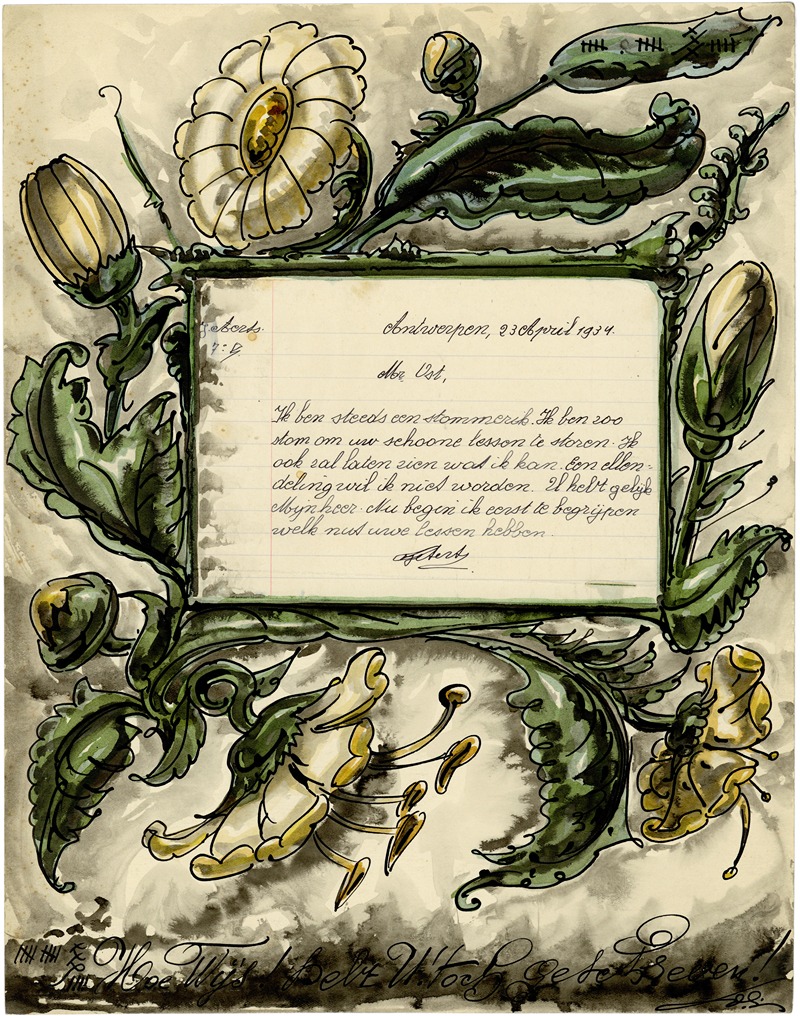 G. Aerts.
Antwerpen, 23 April 1934.
Mr. Ost,
Ik ben steeds een stommerik. Ik ben zoo
stom om uw schoone lessen te storen. Ik
ook zal laten zien wat ik kan. Een ellen-
deling wil ik niet worden. U hebt gelijk
Mijnheer. Nu begin ik eerst te begrijpen
welk nut uwe lessen hebben.
GAerts
Hoe Wijs! Hebt U toch geschreven!